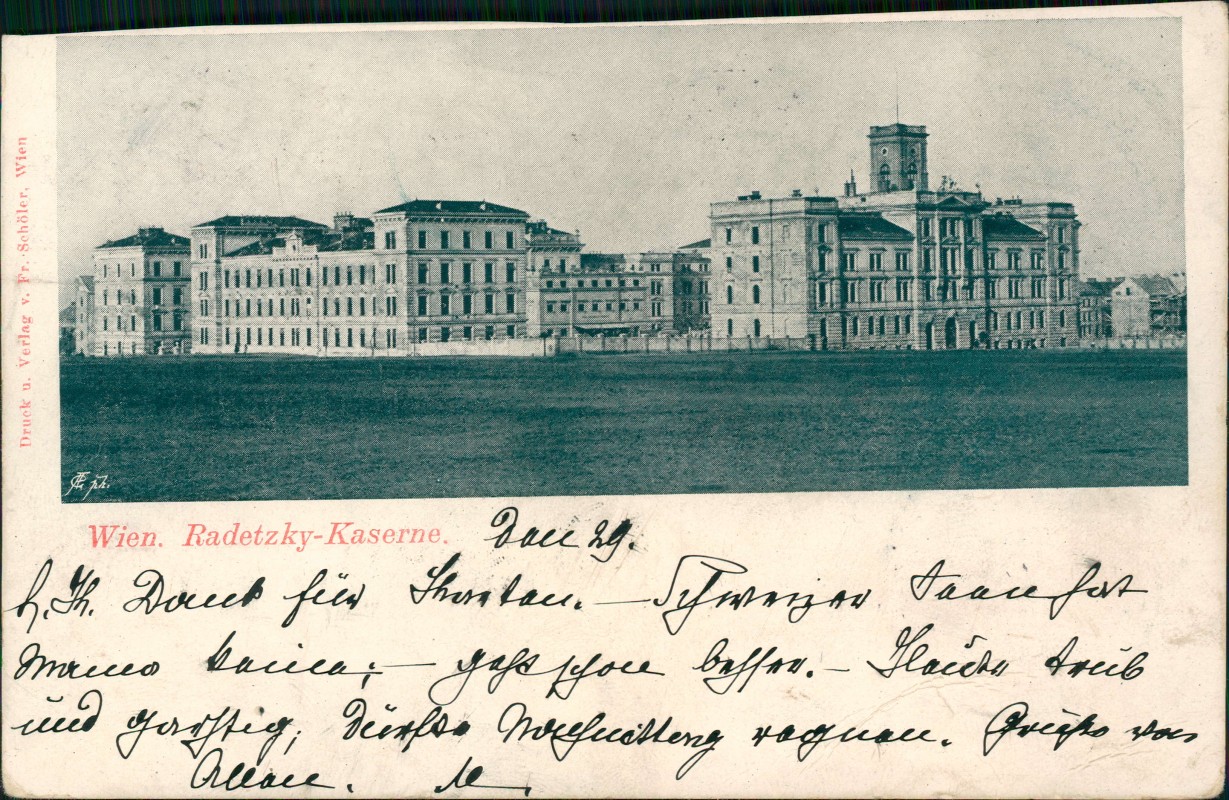 Druck u. Verlag v. Fr. Schöler, Wien
ph.
Wien. Radetzky-Kaserne. Den 29.
L. Th. Dank für Karten. — Schweizer hat
Mama keine; — geht schon besser. — Heute trüb
und garstig, dürfte Nachmittag regnen. Grüße von
Allen. M.